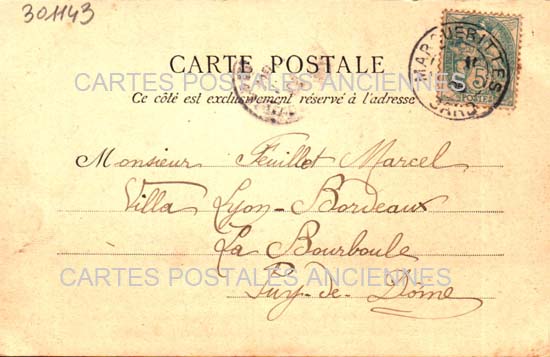 301143
CARTE POSTALE
CARTES POSTALES ANCIENNES
Ce côté est exclusivement réservé à l'adresse
MARGUERITTES
GARD
POSTES
Monsieur Feuillet Marcel
Villa Lyon-Bordeaux
La Bourboule
CARTES POSTALES ANCIENNES
Puy-de-Dôme